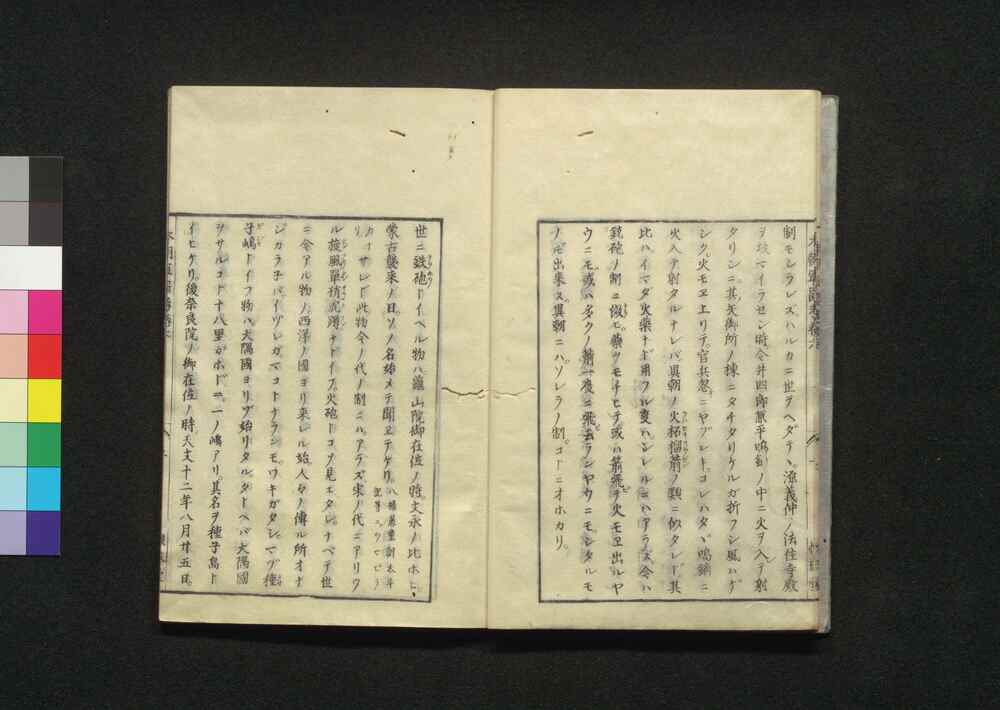 制モシラレズハルカニ世ヲヘダテヽ源義仲ノ法住寺殿
ヲ攻マイラセシ時今井四郎兼平鳴鏑ノ中ニ火ヲ入テ射
タリシニ其矢御所ノ棟ニタチタリケルガ折フシ風ハゲ
シク火モヱ上リテ官兵忽ニヤブレキコレハタヾ鳴鏑ニ
火入テ射タルナレバ異朝ノ火柘榴箭ノ類ニ似タレド其
比ハイマダ火薬ナド用フル事ハシレルニハアラズ今ハ
銃砲ノ制ニ倣モ ツモチヒテ或ハ箭飛テ火モヱ出ルヤ
ウニモ或ハ多クノ箭一度ニ飛去ランヤウニモシタルモ
ノモ出来ヌ異朝ニハソレラノ制コトニオホカリ
世ニ鉄砲トイヘル物ハ龜山院御在位ノ時文永ノ比ホヒ
蒙古襲来ノ日ソノ名始メテ聞ヱテケリ八幡愚童訓太平記等ニ
サレド此物今ノ代ノ制ニハアラズ宋ノ代ニアリケ
ル旋風單梢虎蹲ナドイフ火砲トコソ見エタレナベテ世
ニ今アル物ノ西洋ノ國ヨリ来レル始人々ノ傳ル所オナ
ジカラ子バイヅレガマコトナランモワキガタシマヅ種
子嶋トイフ物ハ大隅國ヨリゾ始リタルタトヘバ大隅國
ヲサルコト十八里ガホドニ一ノ嶋アリ其名ヲ種子島ト
イヒケリ後奈良院ノ御在位ノ時天文十二年八月廿五日